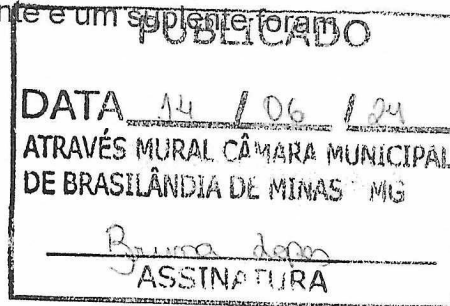 nte e um suplente foram
PUBLICADO
DATA 14 / 06 / 24
ATRAVÉS MURAL CÂMARA MUNICIPAL
DE BRASILÂNDIA DE MINAS MG
Bruna Lopes
ASSINATURA